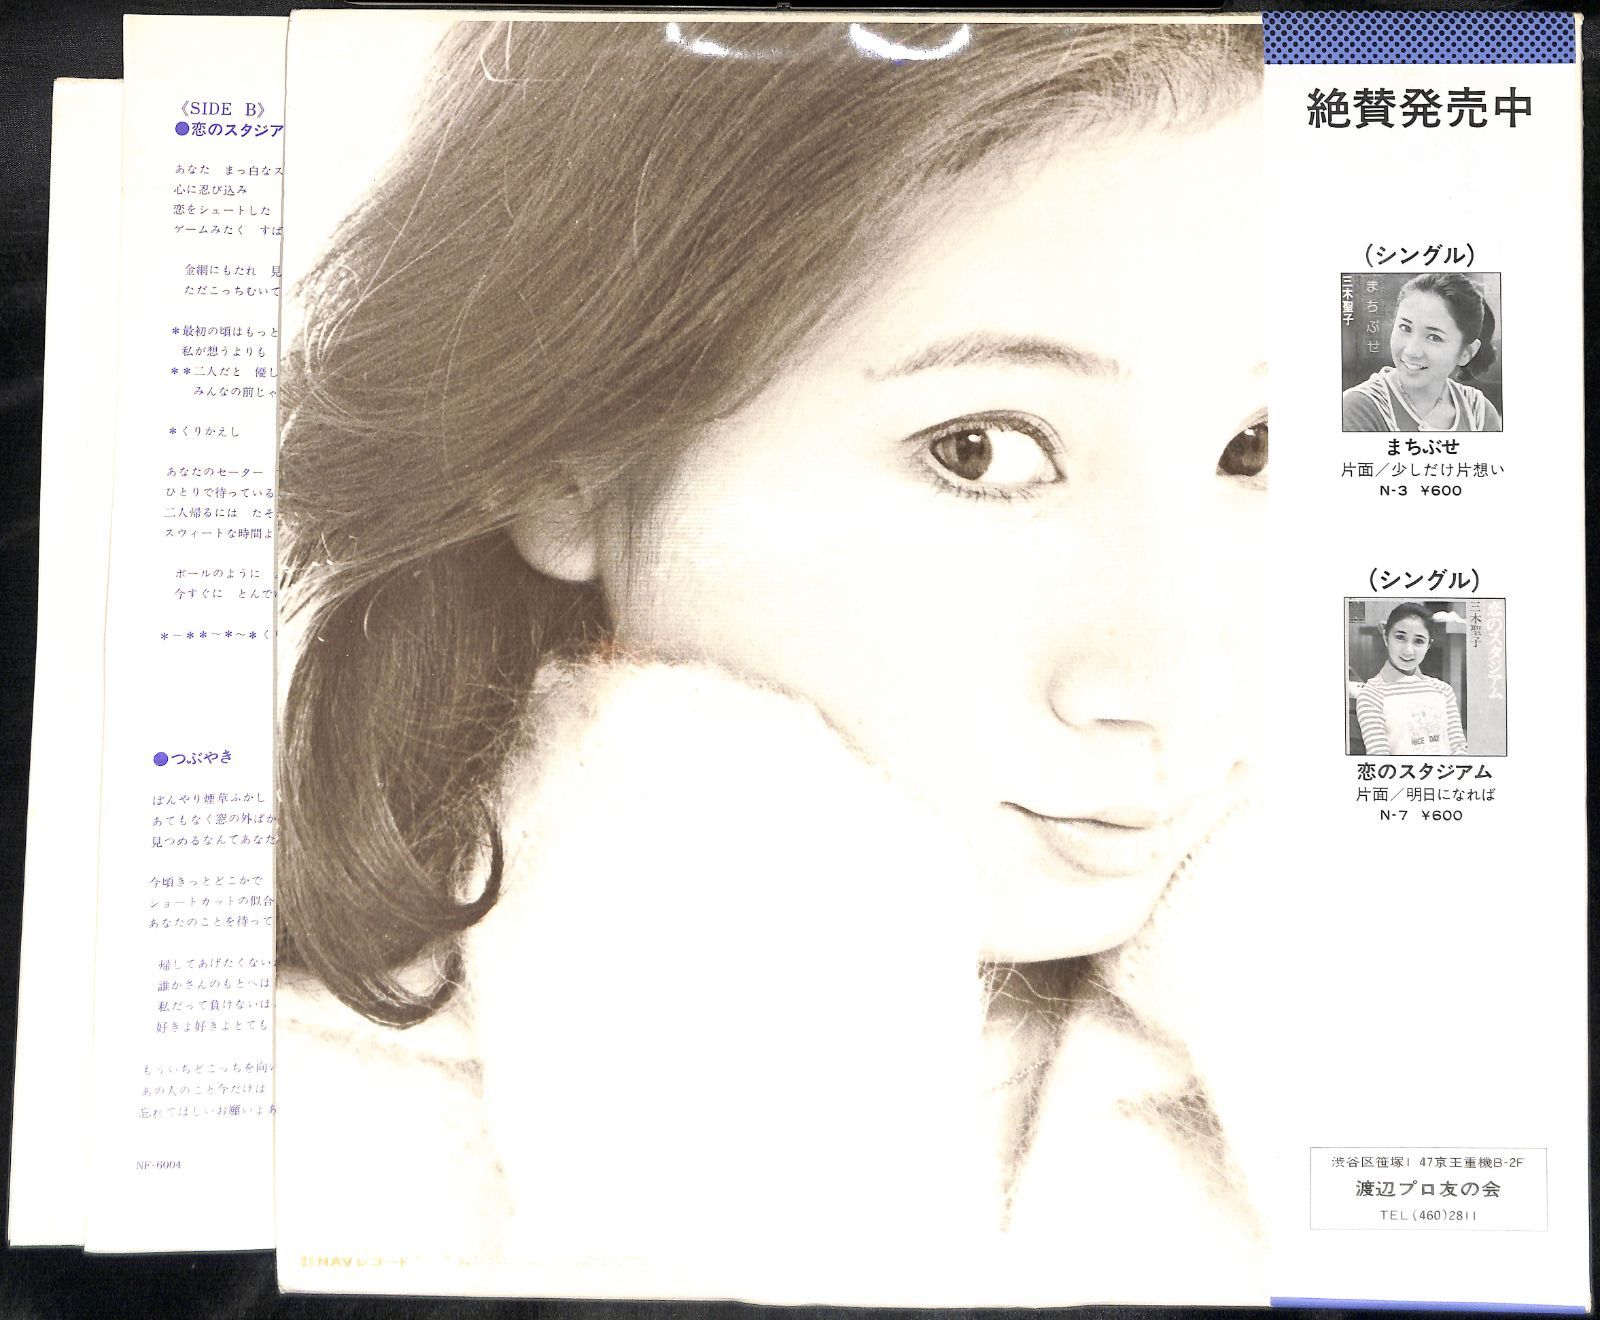 《SIDE B》
●恋のスタジア
あなた まっ白なス
心に忍び込み
恋をシュートした
ゲームみたく すば
金網にもたれ 見
ただこっちむいて
＊最初の頃はもっと
私が想うよりも
＊＊二人だと 優し
みんなの前じゃ
＊くりかえし
あなたのセーター
ひとりで待っている
二人帰るには たそ
スウィートな時間よ
ボールのように
今すぐに とんで
＊－＊＊～＊～＊く
●つぶやき
ぼんやり煙草ふかし
あてもなく窓の外ばか
見つめるなんてあなた
今頃きっとどこかで
ショートカットの似合
あなたのことを待って
帰してあげたくない
誰かさんのもとへは
私だって負けないほ
好きよ好きよとても
もういちどこっちを向い
あの人のこと今だけは
忘れてほしいお願いよあ
NF-6004
NAVレコード
絶賛発売中
(シングル)
三木聖子
まちぶせ
まちぶせ
片面／少しだけ片想い
N-3 ¥600
(シングル)
恋のスタジアム
三木聖子
NICE DAY
恋のスタジアム
片面／明日になれば
N-7 ¥600
渋谷区笹塚1 47京王重機B-2F
渡辺プロ友の会
TEL(460)2811